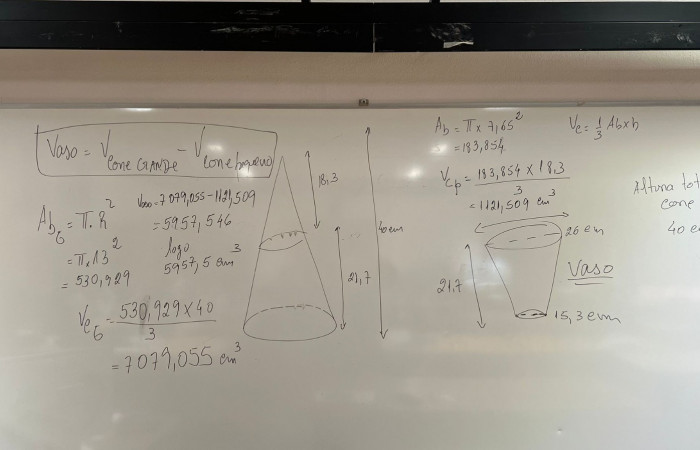 Vaso = V cone GRANDE - V cone pequeno
Ab G = π.R²
= π.13²
= 530,929
Vaso = 7079,055 - 1121,509
= 5957,546
logo
5957,5 cm³
Vc G = 530,929 x 40
3
= 7079,055 cm³
18,3
21,7
40 cm
Ab = π x 7,65²
= 183,854
Vc = 1/3 Ab x h
Vcp = 183,854 x 18,3
3
= 1121,509 cm³
26 cm
21.7
Vaso
15,3 cm
Altura tot
cone
40 c